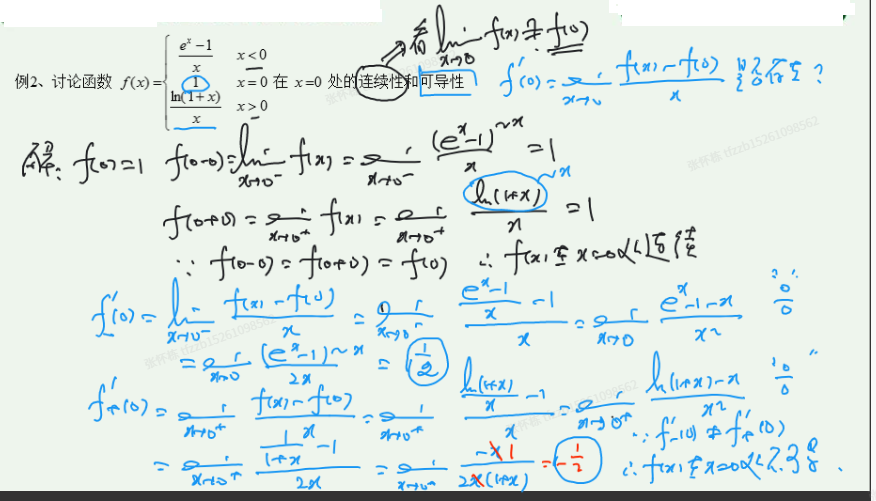 看 lim_{x→0} f(x) = f(0)
例2、讨论函数 f(x) = { (e^x − 1)/x   x < 0
1   x = 0 在 x = 0 处的连续性和可导性
ln(1+x)/x   x > 0
f'(0) = lim_{x→0} (f(x) − f(0))/x 是否存在?
解: f(0) = 1   f(0−0) = lim_{x→0⁻} f(x) = lim_{x→0⁻} (e^x − 1)~x / x = 1
f(0+0) = lim_{x→0⁺} f(x) = lim_{x→0⁺} ln(1+x)~x / x = 1
∵ f(0−0) = f(0+0) = f(0)   ∴ f(x) 在 x=0处连续性
f'₋(0) = lim_{x→0⁻} (f(x) − f(0))/x = lim_{x→0⁻} ((e^x − 1)/x − 1)/x = lim_{x→0} (e^x − 1 − x)/x²   "0/0"
= lim_{x→0} (e^x − 1)~x / 2x = 1/2
f'₊(0) = lim_{x→0⁺} (f(x) − f(0))/x = lim_{x→0⁺} (ln(1+x)/x − 1)/x = lim_{x→0⁺} (ln(1+x) − x)/x²   "0/0"
= lim_{x→0⁺} (1/(1+x) − 1)/2x = lim_{x→0⁺} −x 1/2x(1+x) = −1/2
∵ f'₋(0) ≠ f'₊(0)
∴ f(x) 在 x=0处不可导.
张怀栋 tfzzb15261098562